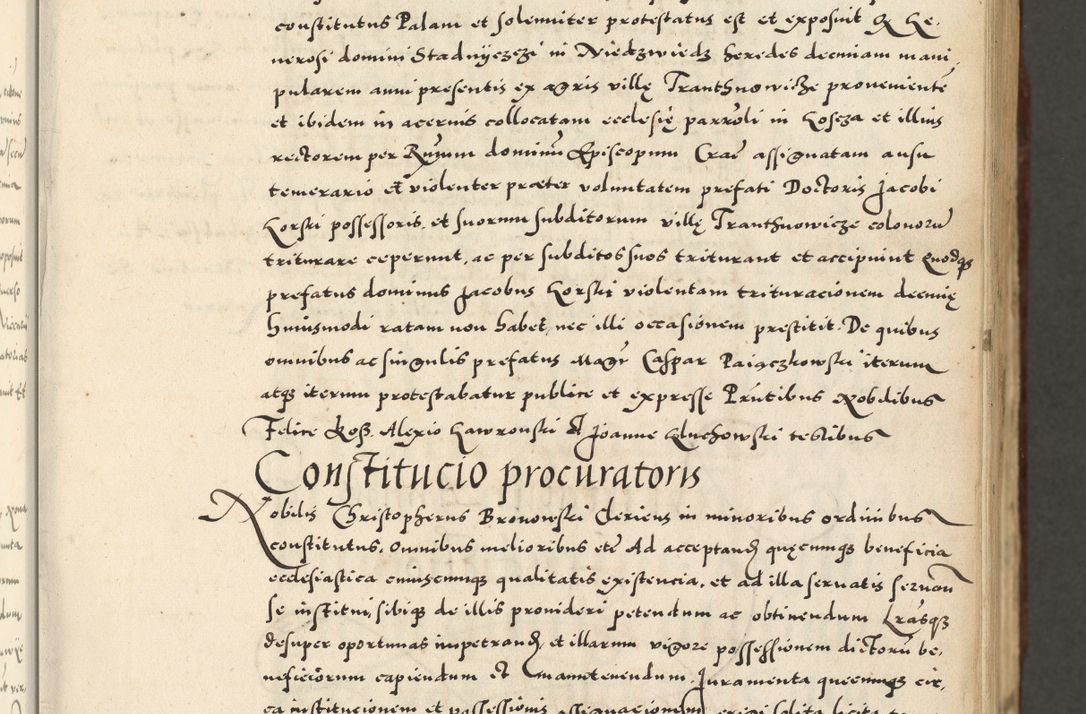 constitutus Palam et solenniter protestatus est et exposuit Q Ge,
nerosi domini Stadnyczczi in Niedzwiedz heredes decimam mani,
pularem anni presentis ex agris villę Tranthnowicze proveniente
et ibidem in acervis collocatam ecclesię parroli in Koscza et illius
rectorem per Rmum dominu Episcopum Crac assignatam ausu
temerario et violenter præter voluntatem prefati Doctoris Jacobi
Gorski possessoris, et suorum subditorum villę Tranthnowicze colonoru
triturare ceperunt, ac per subditos suos triturant et accipiunt Quodqz
prefatus dominus Jacobus Gorski violentam trituracionem decimę
huiusmodi ratam non habet, nec illi occasionem prestitit. De quibus
omnibus ac singulis prefatus Magr Caspar Paiączkowski iterum
atqz iterum protestabatur publice et expresse Prntibus Robdibus
Felice Ros. Alexio Gawronski et Joanne Gluchowski testibus
Constitucio procuratoris
Nobilis Christopherus Bronowski Clericus in minoribus ordinibus
constitutus, omnibus melioribus etc Ad acceptand quęcumqz beneficia
ecclesiastica cuiuscumqz qualitatis existencia, et ad illa servatis servan
se institui, sibiqz de illis provideri petendum ac obtinendum Lrasqz
desuper oportunas impetrand, et illarum vigore possessionem dictoru be,
neficiorum capiendum et manutenendum. Juramenta quecumqz cir,
ca institucionem et possessionis assignacionem exigi solita licita